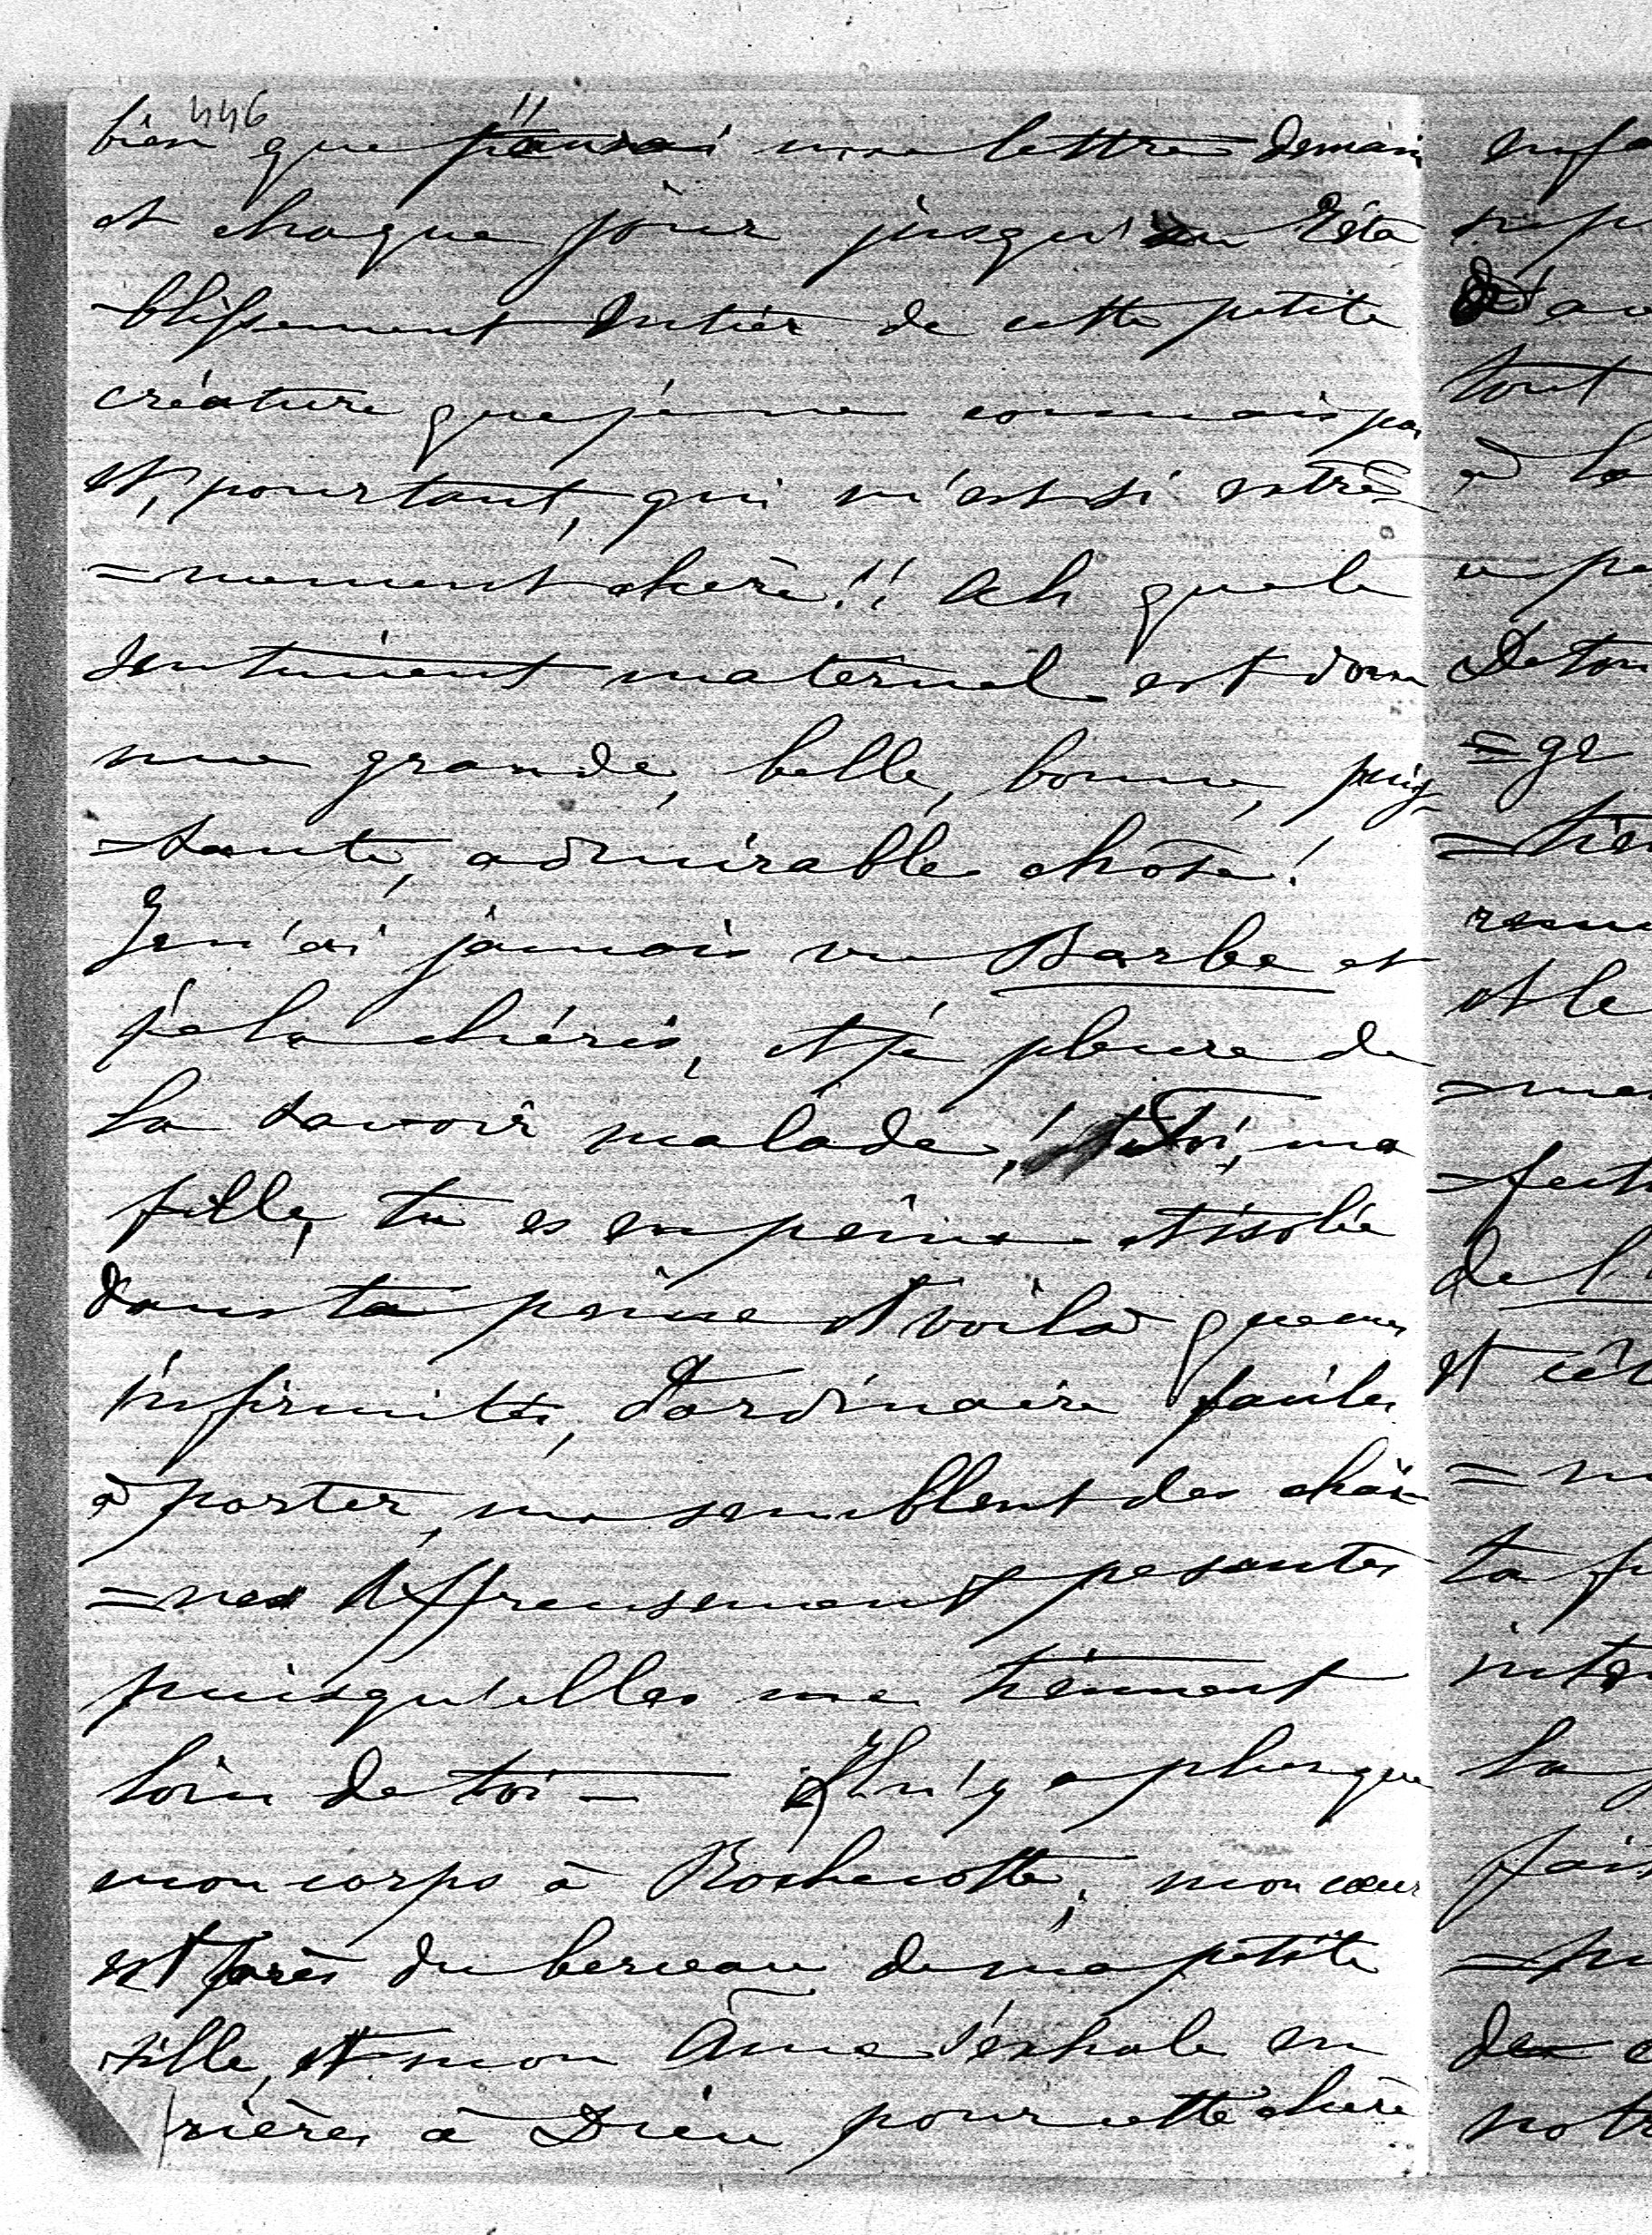 446
bien que j'aurai une lettre demain
et chaque jour jusqu'au Réta
-blissement entier de cette petite
créature que je ne connais pas
et, pourtant, qui m'est si extrê
=mement chère!! Ah que le
sentiment maternel est donc
une grande, belle, bonne, puis
-sante, admirable chose!
Je n'ai jamais vu Barbe et
je la chéris, et je pleure de
la savoir malade! Toi, ma
fille, tu es en peine et isolée
dans ta peine et voilà que mes
infirmités, d'ordinaire faciles
à porter, me semblent des chaî
=nes affreusement pesantes
puisqu'elles me tiennent
loin de toi — Il n'y a plus que
mon corps à Rochecotte; mon cœur
est près du berceau de ma petite
fille, et mon âme s'exhale en
prières à Dieu pour cette chère
tout
à la
et le